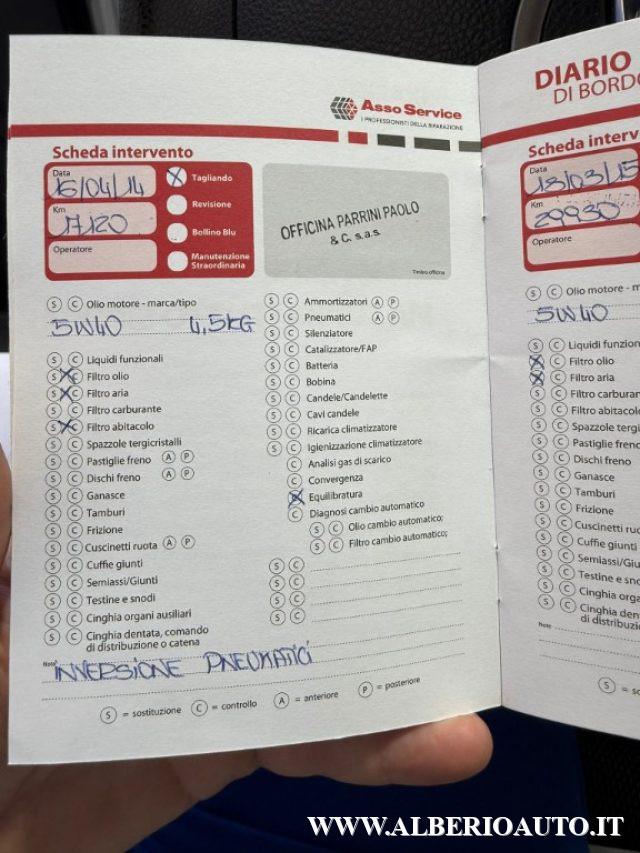 Asso Service
I PROFESSIONISTI DELLA RIPARAZIONE
Scheda intervento
Data
16/04/14
Km
17120
Operatore
Tagliando
Revisione
Bollino Blu
Manutenzione
Straordinaria
OFFICINA PARRINI PAOLO
& C. s.a.s.
Timbro officina
S C Olio motore - marca/tipo
5W40 4,5KG
S C Liquidi funzionali
S C Filtro olio
S C Filtro aria
S C Filtro carburante
S C Filtro abitacolo
S C Spazzole tergicristalli
S C Pastiglie freno A P
S C Dischi freno A P
S C Ganasce
S C Tamburi
S C Frizione
S C Cuscinetti ruota A P
S C Cuffie giunti
S C Semiassi/Giunti
S C Testine e snodi
S C Cinghia organi ausiliari
S C Cinghia dentata, comando
di distribuzione o catena
S C Ammortizzatori A P
S C Pneumatici A P
S C Silenziatore
S C Catalizzatore/FAP
S C Batteria
S C Bobina
S C Candele/Candelette
S C Cavi candele
S C Ricarica climatizzatore
S C Igienizzazione climatizzatore
C Analisi gas di scarico
C Convergenza
C Equilibratura
C Diagnosi cambio automatico
S C Olio cambio automatico;
S C Filtro cambio automatico;
S C
S C
S C
Note INVERSIONE PNEUMATICI
S = sostituzione C = controllo A = anteriore P = posteriore
DIARIO
DI BORDO
Scheda interv
Data
13/03/15
Km
29930
Operatore
S C Olio motore - m
5W40
S C Liquidi funzion
S C Filtro olio
S C Filtro aria
S C Filtro carburan
S C Filtro abitacol
S C Spazzole terg
S C Pastiglie fren
S C Dischi freno
S C Ganasce
S C Tamburi
S C Frizione
S C Cuscinetti ru
S C Cuffie giunti
S C Semiassi/Giu
S C Testine e sno
S C Cinghia orga
S C Cinghia dent
di distribuzi
Note
S = so
WWW.ALBERIOAUTO.IT